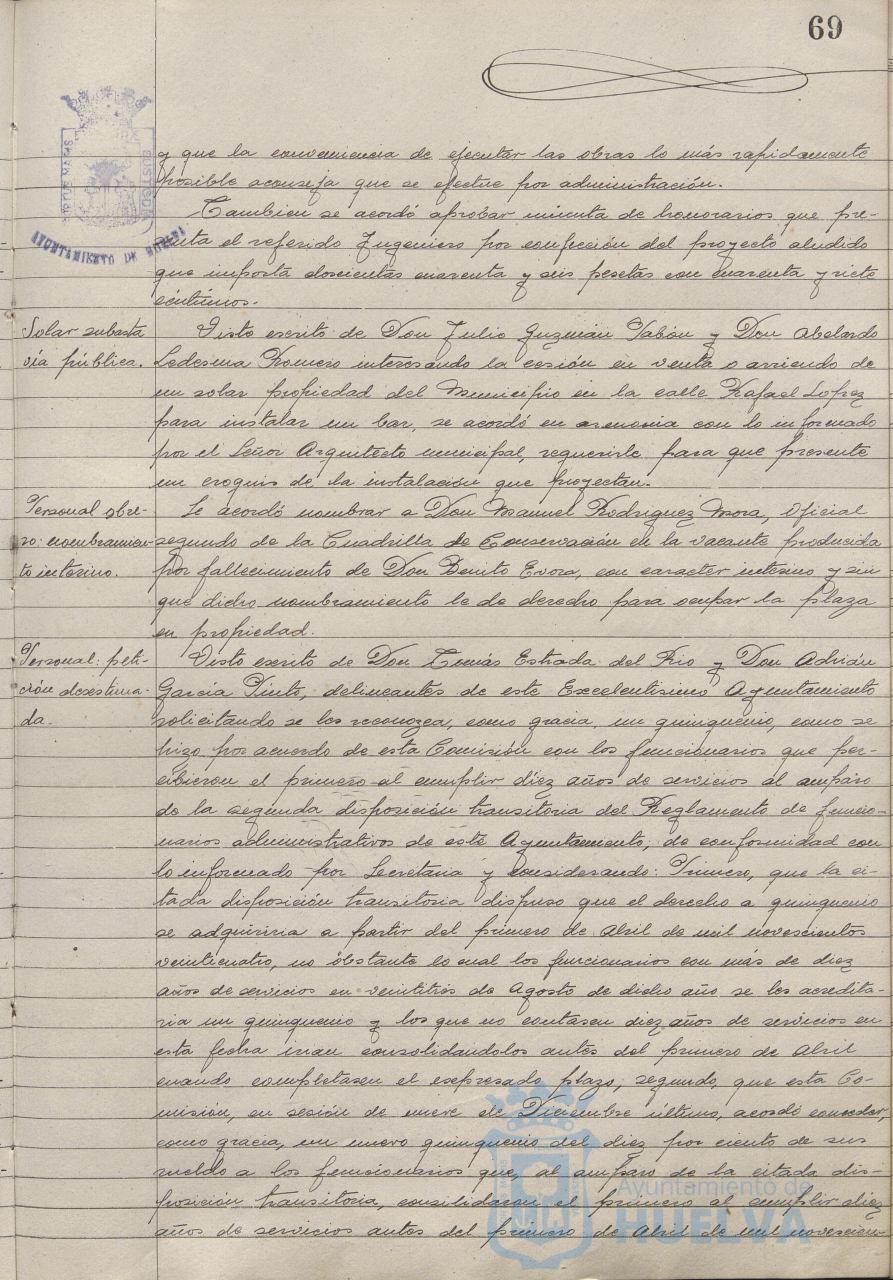 69
AYUNTAMIENTO DE HUELVA
y que la conveniencia de ejecutar las obras lo más rapidamente
posible aconseja que se efectue por administración.
Tambien se acordó aprobar minuta de honorarios que pre-
senta el referido Ingeniero por confección del proyecto aludido
que importa doscientas cuarenta y seis pesetas con cuarenta y siete
céntimos.
Solar subasta
vía pública.
Visto escrito de Don Julio Guzmán Pabón y Don Abelardo
Ledesma Romero interesando la cesión en venta o arriendo de
un solar propiedad del Municipio en la calle Rafael Lopez
para instalar un bar, se acordó en armonia con lo informado
por el Señor Arquitecto municipal, requerirle para que presente
un croquis de la instalación que proyectan.
Personal obre-
ro: nombramien-
to interino.
Se acordó nombrar a Don Manuel Rodriguez Mora, Oficial
segundo de la Cuadrilla de Conservación en la vacante producida
por fallecimiento de Don Benito Evora, con caracter interino y sin
que dicho nombramiento le de derecho para ocupar la plaza
en propiedad.
Personal: peti-
ción desestima-
da.
Visto escrito de Don Tomás Estrada del Rio y Don Adrián
García Pinto, delineantes de este Excelentisimo Ayuntamiento
solicitando se les reconozca, como gracia, un quinquenio, como se
hizo por acuerdo de esta Comisión con los funcionarios que per-
cibieron el primero al cumplir diez años de servicios al amparo
de la segunda disposición transitoria del Reglamento de funcio-
narios administrativos de este Ayuntamiento, de conformidad con
lo informado por Secretaria y considerando: Primero, que la ci-
tada disposición transitoria dispuso que el derecho a quinquenio
se adquiriria a partir del primero de Abril de mil novescientos
veinticuatro, no obstante lo cual los funcionarios con más de diez
años de servicios en veintitrés de Agosto de dicho año se les acredita-
ria un quinquenio y los que no contasen diez años de servicios en
esta fecha irian consolidandolos antes del primero de Abril
cuando completasen el esepresado plazo, segundo, que esta Co-
misión, en sesión de nueve de Diciembre último, acordó conceder,
como gracia, un nuevo quinquenio del diez por ciento de sus
sueldo a los funcionarios que, al amparo de la citada dis-
posición transitoria, consilidaron el primero al cumplir diez
años de servicios antes del primero de Abril de mil novescien-
Ayuntamiento de
HUELVA